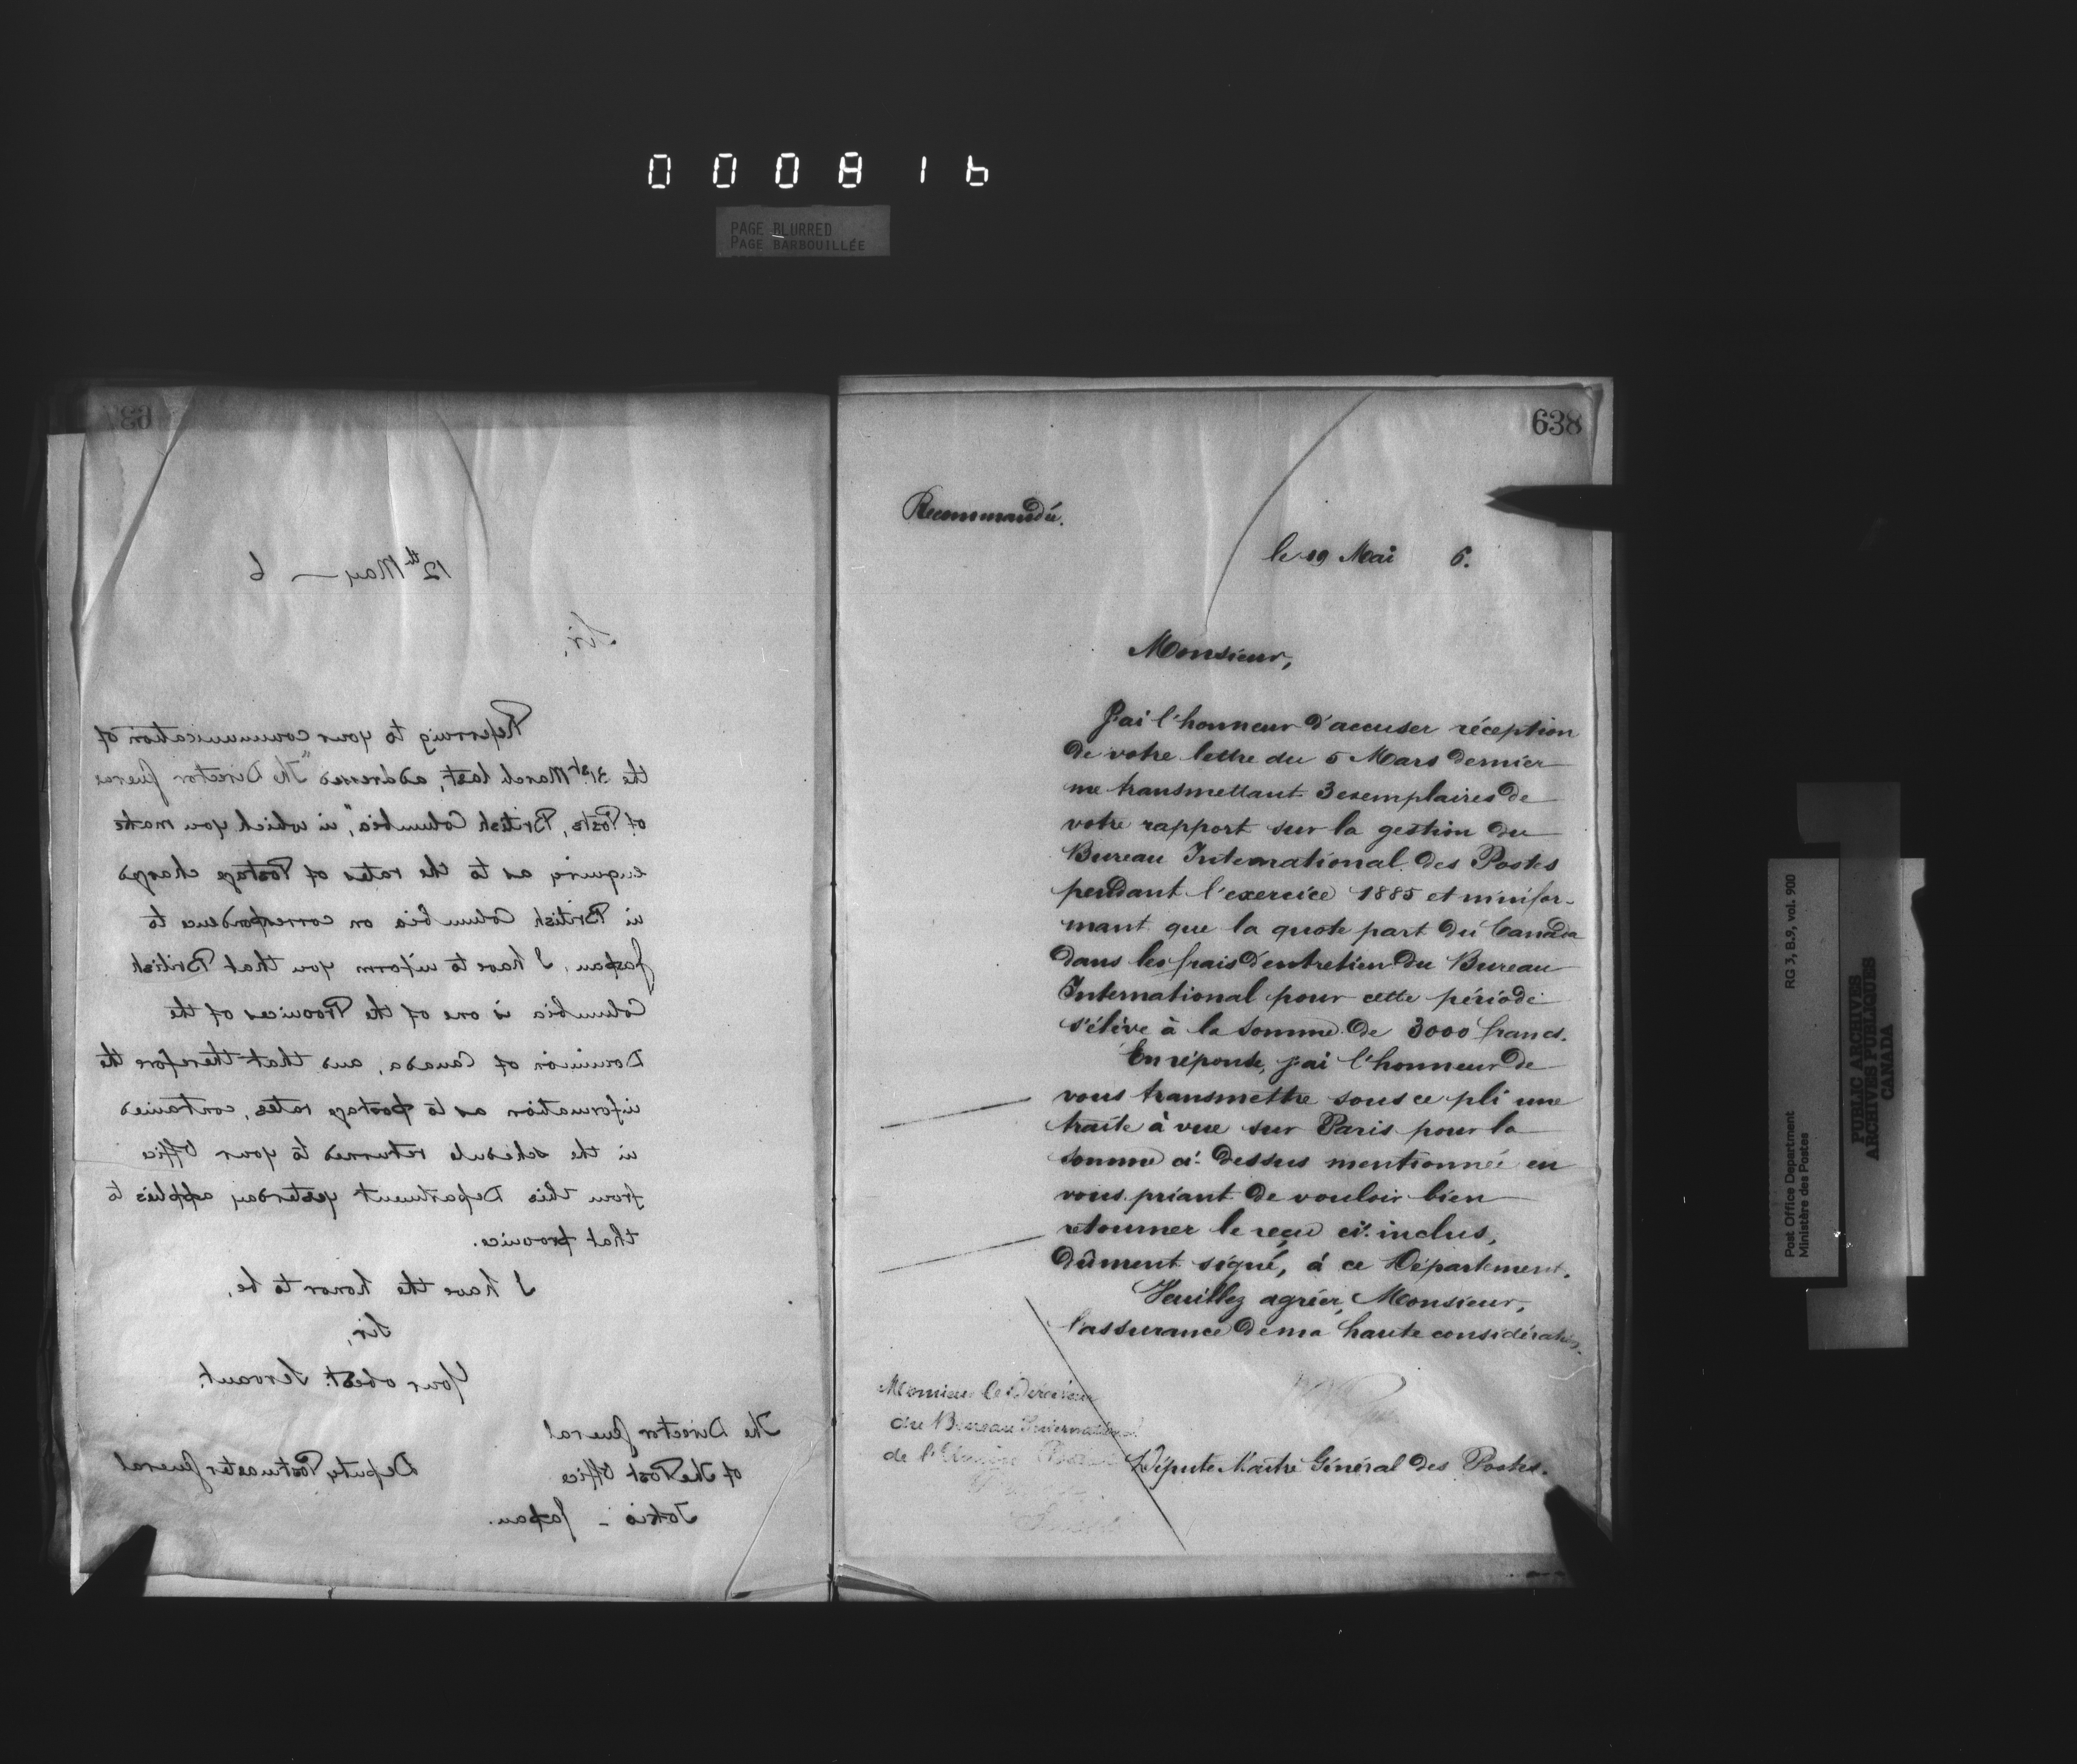 0 0 0 8 1 6
PAGE BLURRED
PAGE BARBOUILLÉE
637
12th May — 6
Sir,
Referring to your communication of
the 31st March last, addressed "The Director General
of Posts, British Columbia", in which you make
enquiry as to the rates of Postage charged
in British Columbia on correspondence to
Japan, I have to inform you that British
Columbia is one of the Provinces of the
Dominion of Canada, and that therefore the
information as to postage rates, contained
in the schedule returned to your Office
from this Department yesterday applies to
that province.
I have the honor to be,
Sir,
Your obedt. Servant.
The Director General
of the Post Office
Tokio - Japan.
Deputy Postmaster General
638
Recommandée.
le 19 Mai 6.
Monsieur,
J'ai l'honneur d'accuser réception
de votre lettre du 5 Mars dernier
me transmettant 3 exemplaires de
votre rapport sur la gestion du
Bureau International des Postes
pendant l'exercice 1885 et m'infor-
mant que la quote part du Canada
dans les frais d'entretien du Bureau
International pour cette période
s'élève à la somme de 3000 francs.
En réponse, j'ai l'honneur de
vous transmettre sous ce pli une
traite à vue sur Paris pour la
somme ci-dessus mentionnée en
vous priant de vouloir bien
retourner le reçu ci-inclus,
dûment signé, à ce Département.
Veuillez agréer, Monsieur,
l'assurance de ma haute considération.
Monsieur le Directeur
du Bureau International
de l'Union Postale
Député Maître Général des Postes.
RG 3, B.9, vol. 900
Post Office Department
Ministère des Postes
PUBLIC ARCHIVES
ARCHIVES PUBLIQUES
CANADA